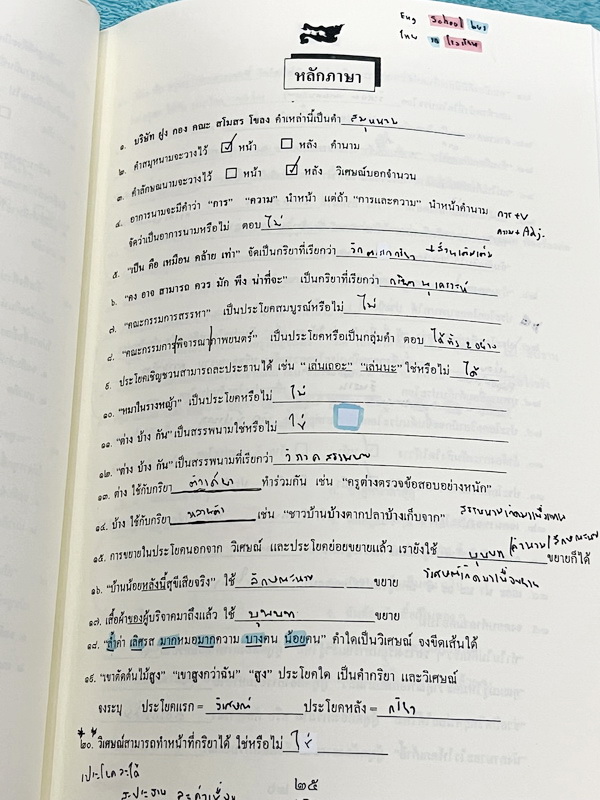 Eng School bus
ไทย รถ โรงเรียน
หลักภาษา
๑. บริษัท ฝูง กอง คณะ สโมสร โขลง คำเหล่านี้เป็นคำ สมุหนาม
๒. คำสมุหนามจะวางไว้ ☑ หน้า ☐ หลัง คำนาม
๓. คำลักษณนามจะวางไว้ ☐ หน้า ☑ หลัง วิเศษณ์บอกจำนวน
๔. อาการนามจะมีคำว่า "การ" "ความ" นำหน้า แต่ถ้า "การและความ" นำหน้าคำนาม การ+V
จัดว่าเป็นอาการนามหรือไม่ ตอบ ไม่ ความ+Adj.
๕. "เป็น คือ เหมือน คล้าย เท่า" จัดเป็นกริยาที่เรียกว่า วิกตรรถกริยา +ส่วนเติมเต็ม
๖. "คง อาจ สามารถ ควร มัก พึง น่าที่จะ" เป็นกริยาที่เรียกว่า กริยานุเคราะห์
๗. "คณะกรรมการสรรหา" เป็นประโยคสมบูรณ์หรือไม่ ไม่
๘. "คณะกรรมการพิจารณาภาพยนตร์" เป็นประโยคหรือเป็นกลุ่มคำ ตอบ ได้ทั้ง 2 อย่าง
๙. ประโยคเชิญชวนสามารถละประธานได้ เช่น "เล่นเถอะ" "เล่นนะ" ใช่หรือไม่ ได้
๑๐. "หมาในรางหญ้า" เป็นประโยคหรือไม่ ไม่
๑๑. "ต่าง บ้าง กัน" เป็นสรรพนามใช่หรือไม่ ใช่
๑๒. "ต่าง บ้าง กัน" เป็นสรรพนามที่เรียกว่า วิภาคสรรพนาม
๑๓. ต่าง ใช้กับกริยา ทำร่วมกัน เช่น "ครูต่างตรวจข้อสอบอย่างหนัก"
๑๔. บ้าง ใช้กับกริยา เช่น "ชาวบ้านบ้างตากปลาบ้างเก็บจาก"
๑๕. การขยายในประโยคนอกจาก วิเศษณ์ และประโยคย่อยขยายแล้ว เรายังใช้ บุพบท/คำนาม/ลักษณะนาม ขยายก็ได้
๑๖. "บ้านน้อยหลังนี้สุขีเสียจริง" ใช้ ลักษณะนาม ขยาย
๑๗. เสื้อผ้าของผู้บริจาคมาถึงแล้ว ใช้ บุพบท ขยาย
๑๘. "ล้ำค่า เลิศรส มากหมอมากความ บางคน น้อยคน" คำใดเป็นวิเศษณ์ จงขีดเส้นใต้
๑๙. "เขาตัดต้นไม้สูง" "เขาสูงกว่าฉัน" "สูง" ประโยคใด เป็นคำกริยา และวิเศษณ์
จงระบุ ประโยคแรก = วิเศษณ์ ประโยคหลัง = กริยา
๒๐. วิเศษณ์สามารถทำหน้าที่กริยาได้ ใช่หรือไม่ ใช่
๒๕